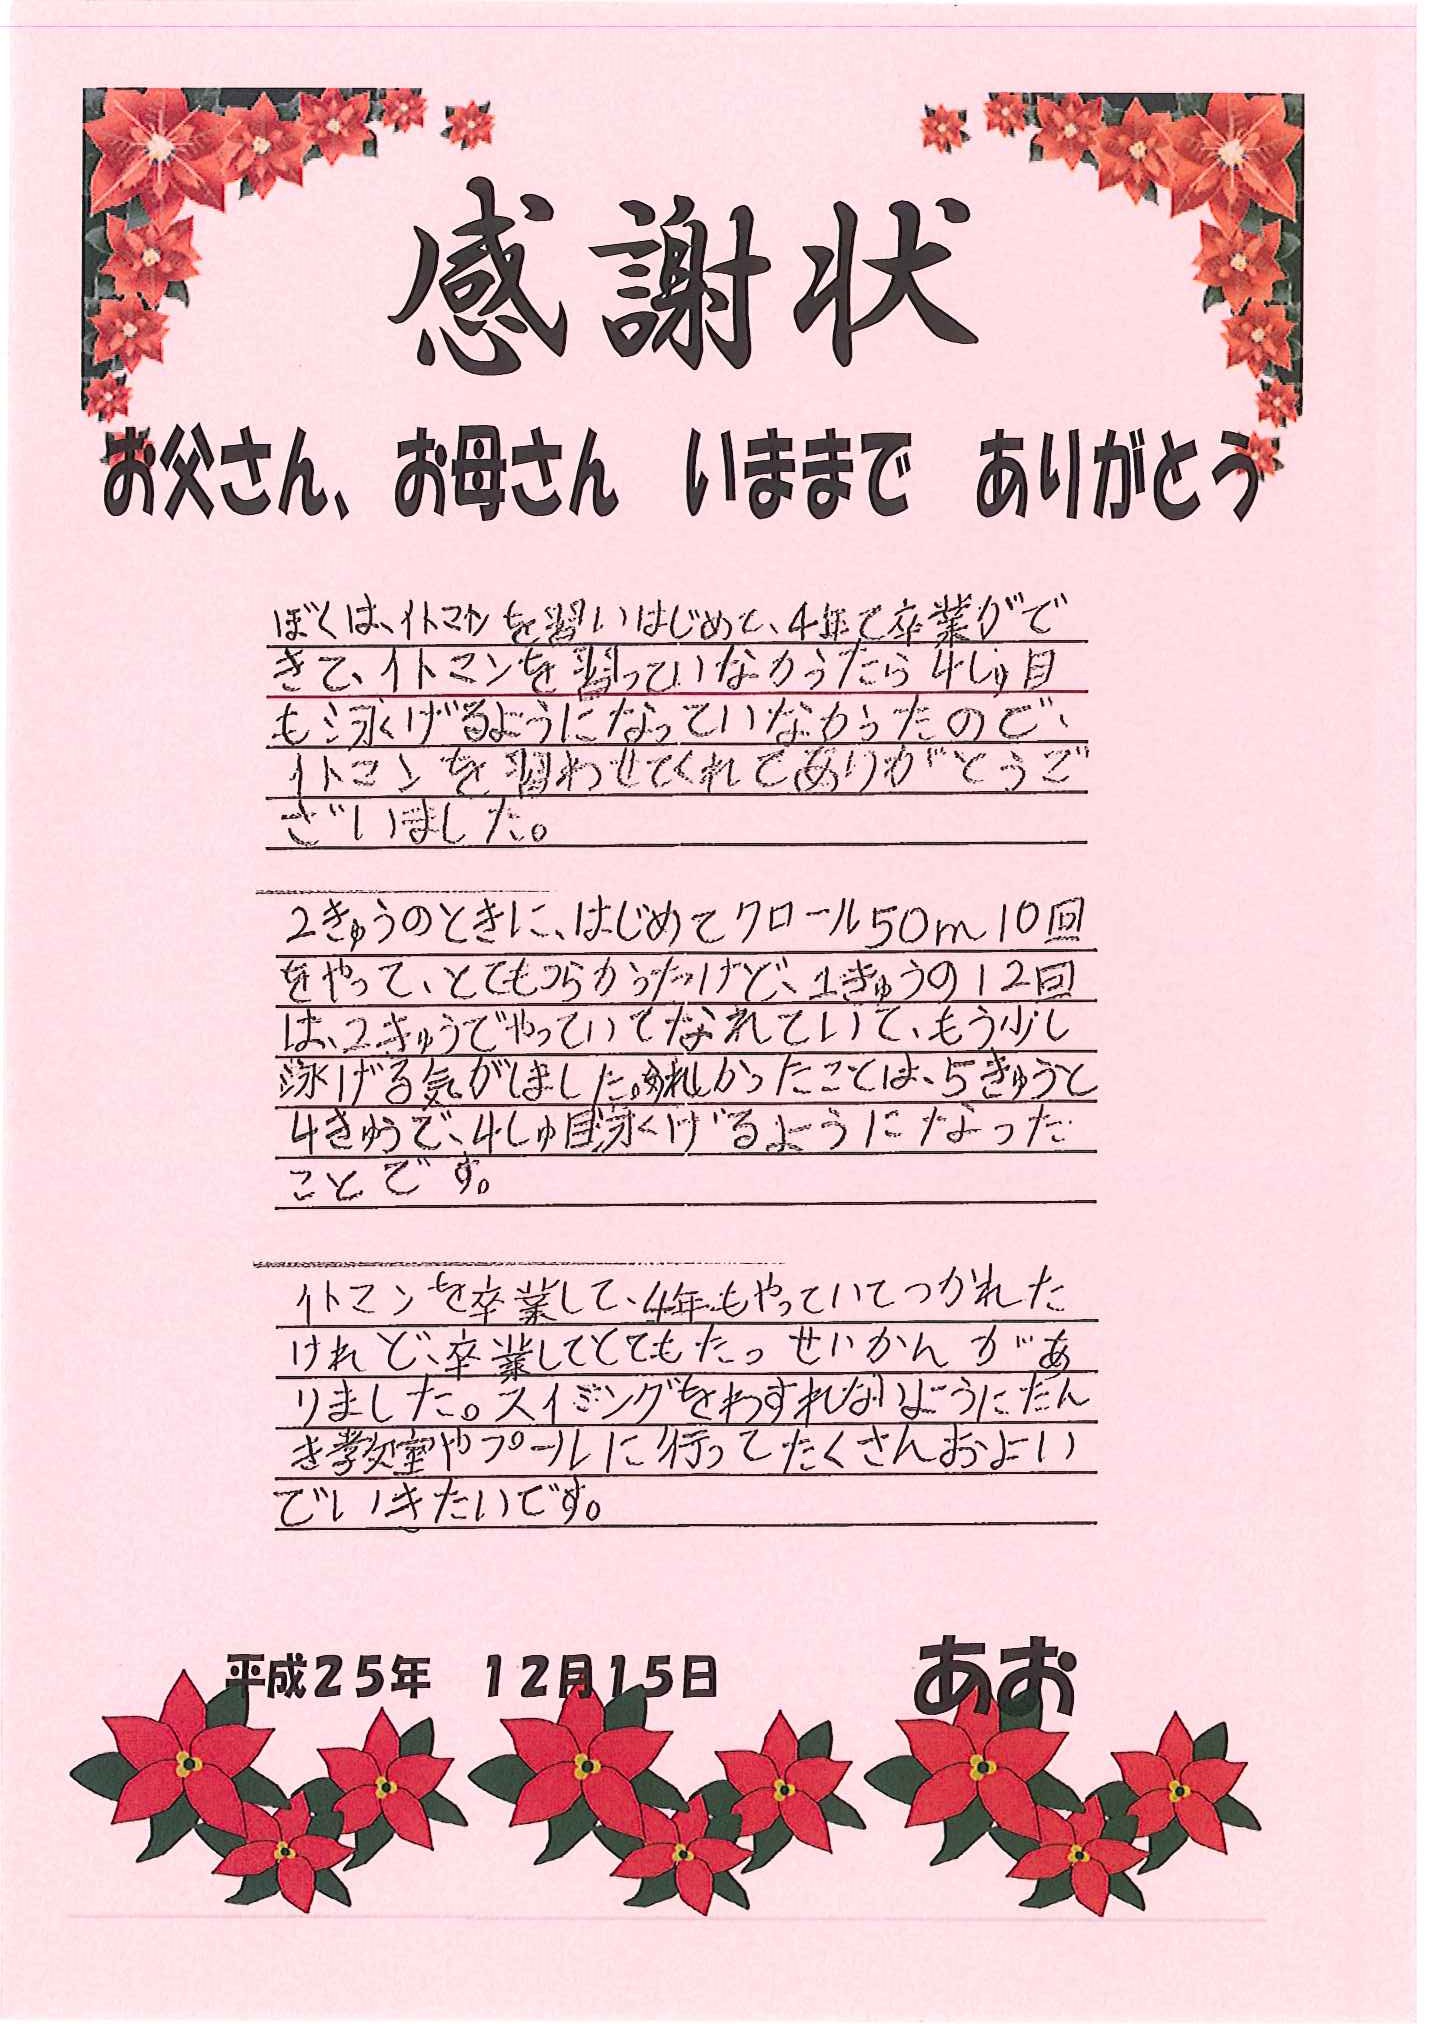 感謝状
お父さん、お母さん　いままで　ありがとう
ぼくは、イトマンを習いはじめて、4年で卒業がで
きて、イトマンを習っていなかったら4しゅ目
も泳げるようになっていなかったので、
イトマンを習わせてくれてありがとうご
ざいました。
2きゅうのときに、はじめてクロール50m10回
をやって、とてもつらかったけど、1きゅうの12回
は、2きゅうでやっていてなれていて、もう少し
泳げる気がしました。うれしかったことは、5きゅうと
4きゅうで、4しゅ目泳げるようになった
ことです。
イトマンを卒業して、4年もやっていてつかれた
けれど、卒業してとてもたっせいかんがあ
りました。スイミングをわすれないようにたん
き教室やプールに行ってたくさんおよい
でいきたいです。
平成25年　12月15日　あお